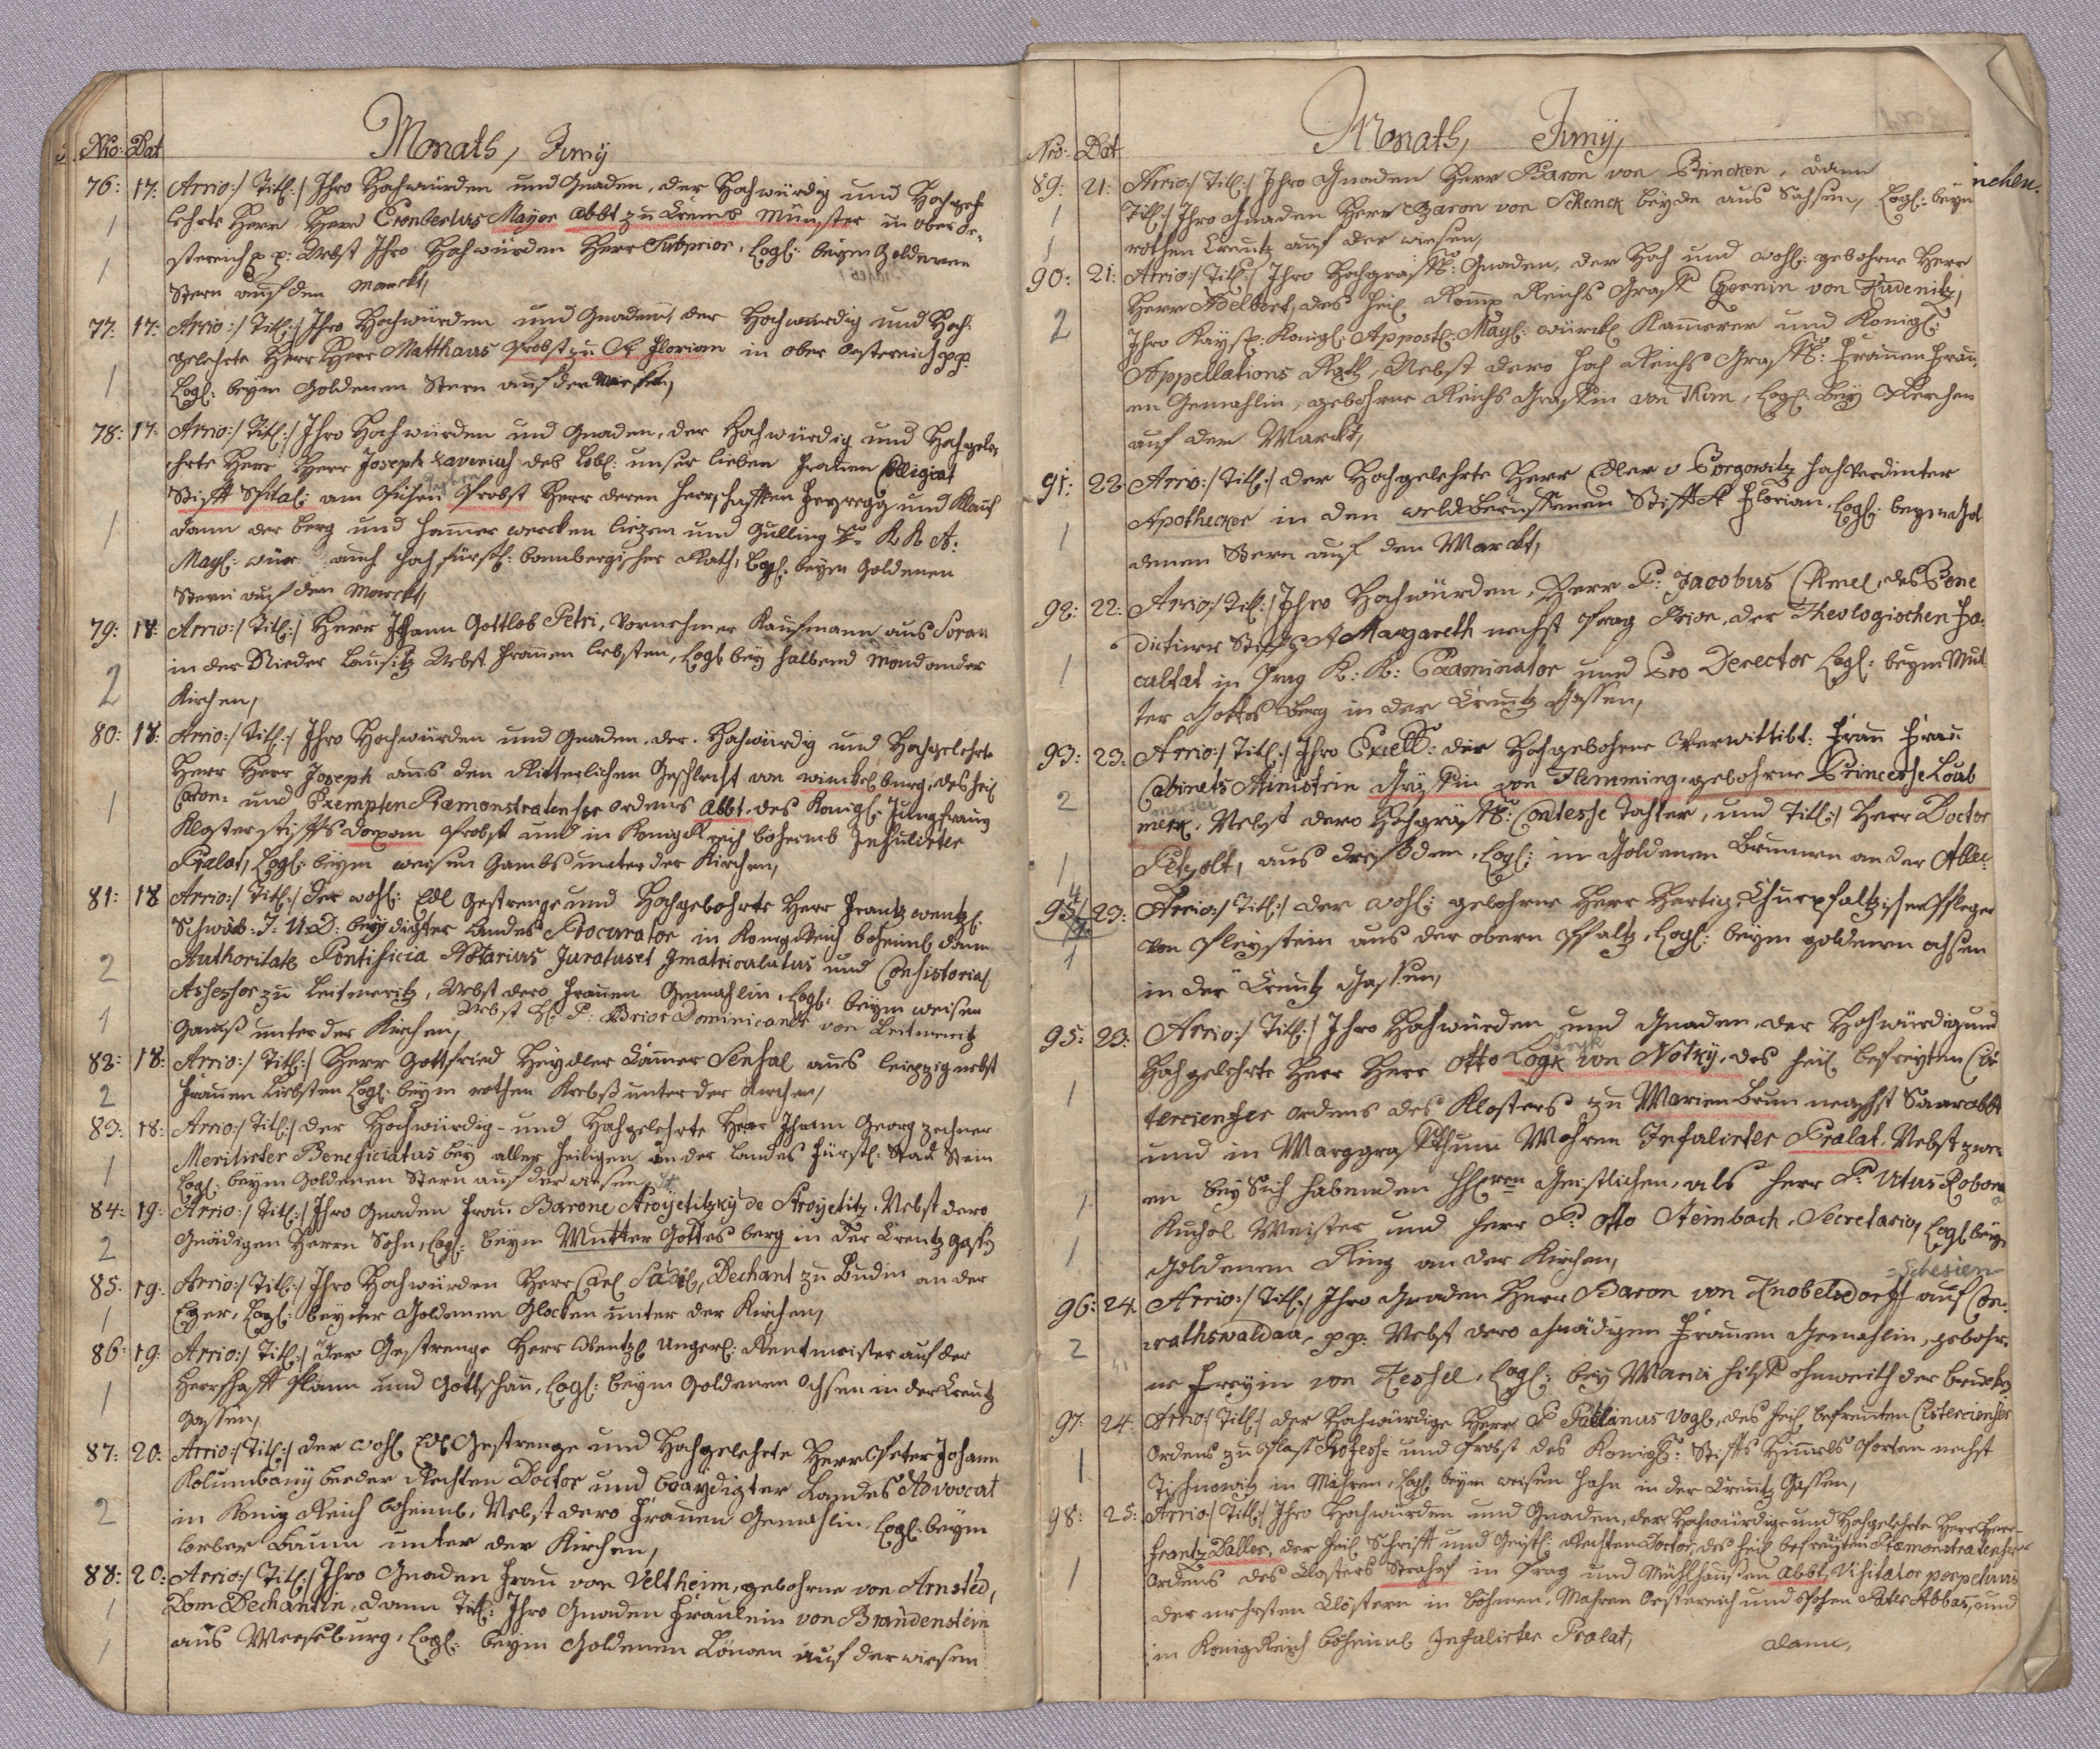 Nro: Dat
Monaths, Juny
76: 17: Arrio:/ Titl:/ Ihro Hochwürden und Gnaden, der Hochwürdig und Hochge-
lehrte Herr Herr Erenbertus Mayer Abbt zu Crems Münster in ober Oe-
stereich pp: Nebst Ihro Hochwürden Herr Subprior, Logl: beym Goldenen
1
1
Stern auf den Marckt,
77: 17: Arrio:/ Titl:/ Ihro Hochwürden und Gnaden, der Hochwürdig und Hoch-
gelehrte Herr Herr Matthaus Probst zu St Florian in ober Oestereich pp:
1
Logl: beym Goldenen Stern auf der
78: 17: Arrio:/ Titl:/ Ihro Hochwürden und Gnaden, der Hochwürdig und Hochgele-
hrte Herr Herr Joseph Xaverius des Löbl: unser lieben Frauen Collegiat
Stifft Spital: am Probst Herr deren Herrschafften und Klaus
1
dann der berg und hammer wercken liezen und Gulling K K A:
Mayl: auch hochfürstl: bambergischer Rath, Logl: beym Goldenen
Stern auf den Marckt,
79: 18: Arrio:/ Titl:/ Herr Johann Gottlob Petri, Vornehmer Kaufmann aus Sorau
in der Nieder Lausitz Nebst Frauen liebsten, Logl bey halbend Mond an der
2
Kirchen,
80: 18: Arrio:/ Titl:/ Ihro Hochwürden und Gnaden, der Hochwürdig und Hochgelehrte
Herr Herr Joseph aus den Ritterlichen Geschlecht von winckelburg, des heil
Canon: und Exempten Præmonstratenser ordens Abbt, des Königl: Jungfrauen
1
Klosterstiffts Doxan Probst und in König Reich böheimb Infulirter
Prælat, Logl: beym weisen Gambs unter der Kirchen,
81: 18 Arrio:/ Titl:/ Der wohl: Edl Gestrenge und Hochgelehrte Herr Frantz wentzl:
Schwab: J: U: D: beeydigter Landes Procurator in König Reich böheimb dann
Authoritate Pontificia Notarius Juratuset Jmatriculatus und Consistorial
2
Assessor zu Leitmeritz, Nebst dero Frauen Gemahlin, Logl: beym weisen
Nebst H: P: Prior Dominicaner von Leitmeritz
1
Gambß unter der Kirchen,
82: 18: Arrio:/ Titl:/ Herr Gottfried Heydler Cammer Sensal aus leipzig nebst
2
Frauen Liebsten Logl: beym rothen Krebß unter der Kirchen,
83: 18: Arrio:/ Titl:/ Der Hochwürdig- und Hochgelehrte Herr Johann Georg zechner
Meritirter Beneficiatus bey aller heiligen in der landes Fürstl: Stadt Stein
1
Logl: beym Goldenen Stern auf der wiesen
84: 19: Arrio:/ Titl:/ Ihro Gnaden Frau Barone Stroyetitzky de Stroyetitz, Nebst dero
2
Gnädigen Herrn Sohn, Logl: beym Mutter Gottes berg in der Creutz Gassen
85: 19: Arrio:/ Titl:/ Ihro Hochwürden Herr Carl Sadil, Dechant zu Budin an der
1
Eger, Logl: bey der Goldenen Glocken unter der Kirchen,
86: 19: Arrio:/ Titl:/ Der Gestrenge Herr Wentzl Ungerl: Rentmeister auf der
Herrschafft Plann und Gottschau, Logl: beym Goldenen Ochsen in der Creutz
1
Gassen,
87: 20: Arrio:/ Titl:/ Der wohl Edl Gestrenge und Hochgelehrte Herr Peter Johann
Kolumbany beeder Rechten Doctor und beaydigter Landes Advocat
2
in König Reich böheimb, Nebst dero Frauen Gemahlin, Logl: beym
lorber Baum unter der Kirchen,
88: 20: Arrio:/ Titl:/ Ihro Gnaden Frau von Veltheim, gebohrne von Arnsted,
1
Dom Dechantin, dann Titl: Ihro Gnaden Fräulein von Brandenstein
1
aus Merseburg, Logl: beym Goldenen Löwen auf der wiesen
Nro: Dat
Monaths, Juny,
89: 21: Arrio:/ Titl:/ Ihro Gnaden Herr Baron von Brincken, dann
nchen.
1
Titl:/ Ihro Gnaden Herr Baron von Schenck beyde aus Sachsen, Logl: beym
1
rothen Creutz auf der wiesen,
90: 21: Arrio:/ Titl:/ Ihro Hochgräffl: Gnaden, der Hoch und wohl: gebohrne Herr
Herr Adelbert, des heil Römp Reichs Graff Czernin von Kudenitz,
2
Ihro Kaysl: Königl: Appostl: Mayl: würckl Kammerer und Königl:
Appellations Rath, Nebst dero hoch Reichs Gräffl: Frauen Frau-
en Gemahlin, gebohrne Reichs Gräffin von Thirn, Logl: bey Kerchen
auf dem Marckt,
91: 22 Arrio:/ Titl:/ Der Hochgelehrte Herr Edler v Gorgowitz hochverdinter
Apothecker in den weldberuffenen Stifft St Florian, Logl: beym Gol
1
denen Stern auf den Marckt,
92: 22: Arrio:/ Titl:/ Ihro Hochwürden, Herr P: Jacobus Chmel, des Bene
dictiner Stiffs St Margareth nechst Prag Prior, der Theologischen Fa-
1
cultat in Prag K: K: Examinator und Pro Derector Logl: beym Mut
ter Gottes berg in der Creutz Gassen,
93: 23: Arrio:/ Titl:/ Ihro Excell: die Hochgebohrne Verwittibt: Frau Frau
2
Cabinets Ministrin Gräffin von Flemming, gebohrne Princesse Loub
merk, Nebst dero Hochgräffl: Contesse Tochter, und Titl:/ Herr Doctor
1
Petzolt, aus Dresden, Logl: in Goldenen Brunnen an der Allee
94 23: Arrio:/ Titl:/ Der wohl: gebohrne Herr Hartig, Churpfaltzischer Pfleger
1
von Pleystein aus der obern Pfaltz, Logl: beym goldenen ochsen
in der Creutz Gassen,
95: 23: Arrio:/ Titl:/ Ihro Hochwürden und Gnaden, der Hochwürdig und
Hochgelehrte Herr Herr Otto Logk von Notky, des heil befreyten Cis
1
tercienser ordens des Klosters zu Marienbrun nechst Saar Abbt
und in Marggraffthum Mähren Infulirter Prælat, Nebst zwe-
1
en bey Sich habenden HHerren Geistlichen, als Herr P: Vitus Robora
Kuchel Meister und Herr P: Otto Steinbach, Secretario, Logl beym
1
Goldenen Ring an der Kirchen,
Schlesien
96: 24: Arrio:/ Titl:/ Ihro Gnaden Herr Baron von Knobelsdorff aus Con-
2
rathswaldau, pp: Nebst dero Gnädigen Frauen Gemahlin, gebohr-
ne Freyin von Kessel, Logl: bey Maria hilff ohnweith der bruck
97: 24: Arrio:/ Titl:/ Der Hochwürdige Herr P Vogl, des heil befreuten Cistercienser
1
Ordens zu Plass Professe und Probst des Königl: Stiffts Himmels Porten nechst
Tischnowitz in Mähren, Logl: beym weisen Hahn in der Creutz Gassen,
98: 25: Arrio:/ Titl:/ Ihro Hochwürden und Gnaden, der Hochwürdige und Hochgelehrte Herr Herr
Frantz Daller, der heil Schrifft und Geistl: Rechten Doctor, des heil befreyten Præmonstratenser
1
Ordens des Closters Strahof in Prag und Mühlhausen Abbt, Visitator perpetuus
der mehrsten Clöstern in böhmen, Mähren Oestereich und Pater Abbas, und
in König Reich böheimb Infulirter Prælat,
dann,